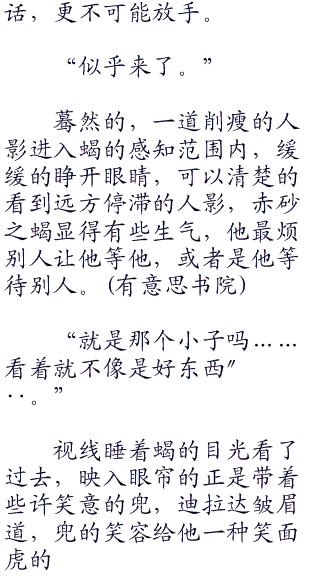 话，更不可能放手。
“似乎来了。”
蓦然的，一道削瘦的人
影进入蝎的感知范围内，缓
缓的睁开眼睛，可以清楚的
看到远方停滞的人影，赤砂
之蝎显得有些生气，他最烦
别人让他等他，或者是他等
待别人。（有意思书院）
“就是那个小子吗……
看着就不像是好东西″
‥。”
视线睡着蝎的目光看了
过去，映入眼帘的正是带着
些许笑意的兜，迪拉达皱眉
道，兜的笑容给他一种笑面
虎的